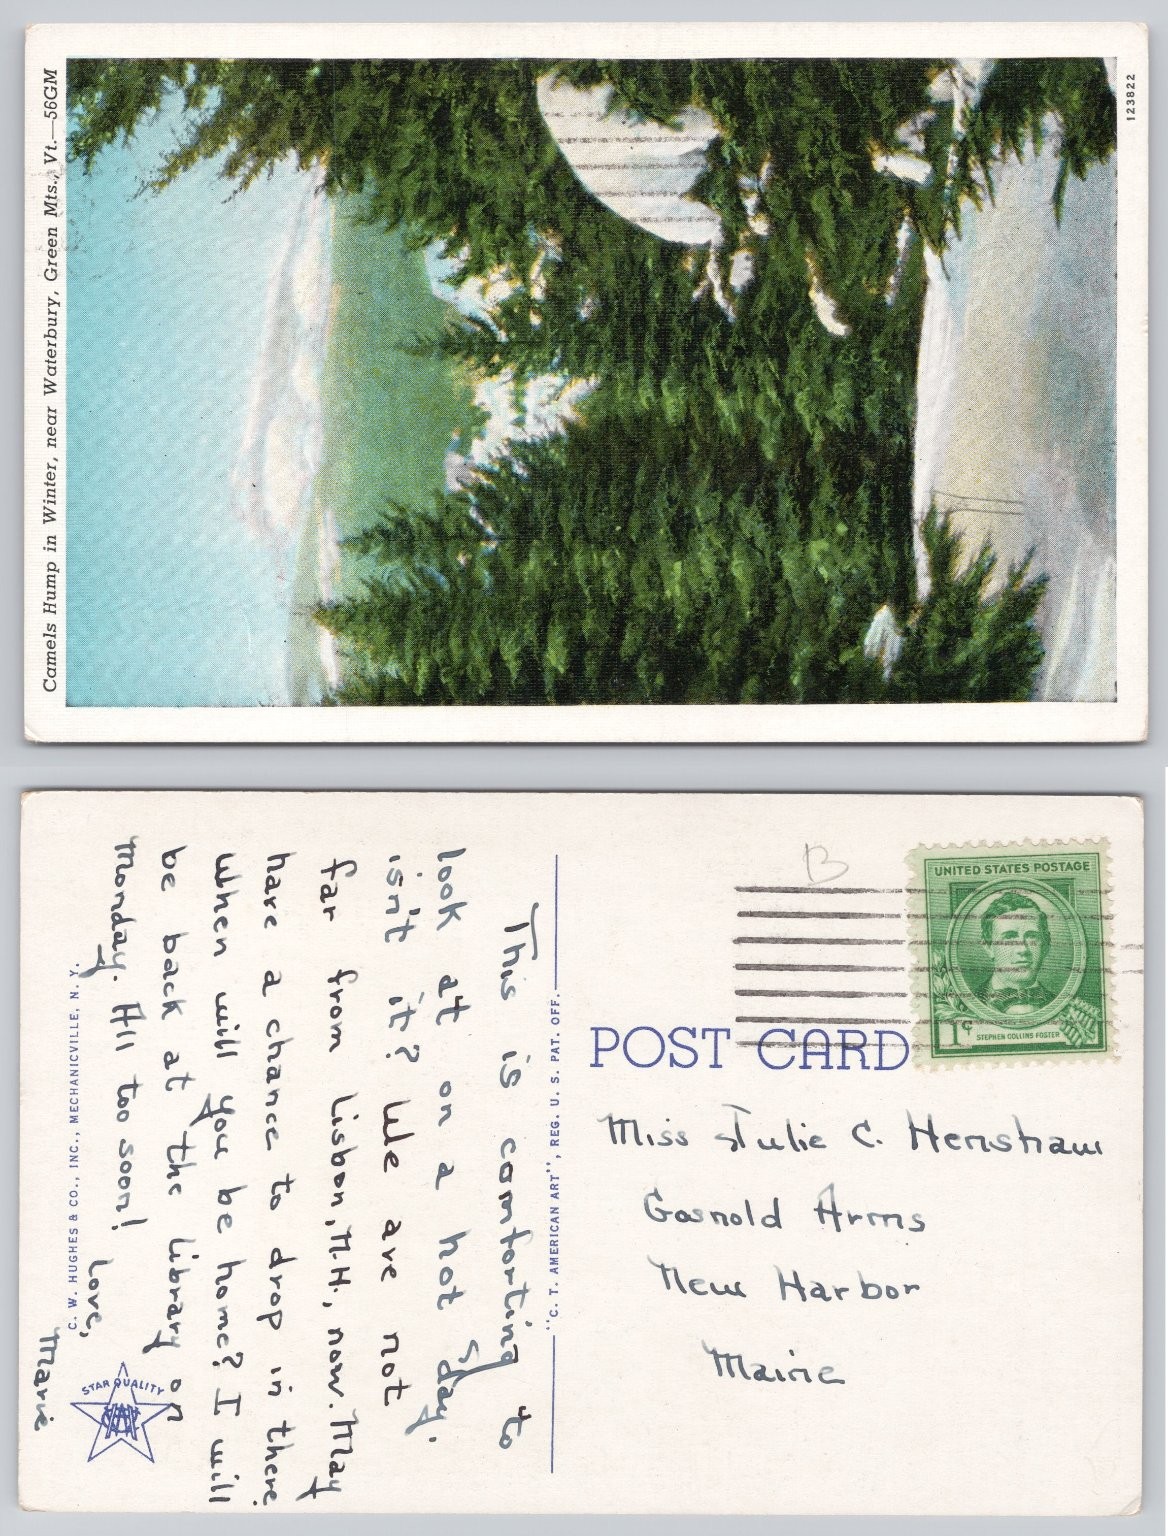 Camels Hump in Winter, near Waterbury, Green Mts., Vt.—56GM
123822
This is comforting to
look at on a hot day.
isn't it? We are not
far from Lisbon, N.H., now. May
have a chance to drop in there.
When will you be home? I will
be back at the library on
Monday. All too soon!
Love,
Marie
C. W. HUGHES & CO., INC., MECHANICVILLE, N. Y.
STAR QUALITY
"C. T. AMERICAN ART", REG. U. S. PAT. OFF.
B
UNITED STATES POSTAGE
1¢
STEPHEN COLLINS FOSTER
POST CARD
Miss Julie C. Henshaw
Gosnold Arms
New Harbor
Maine